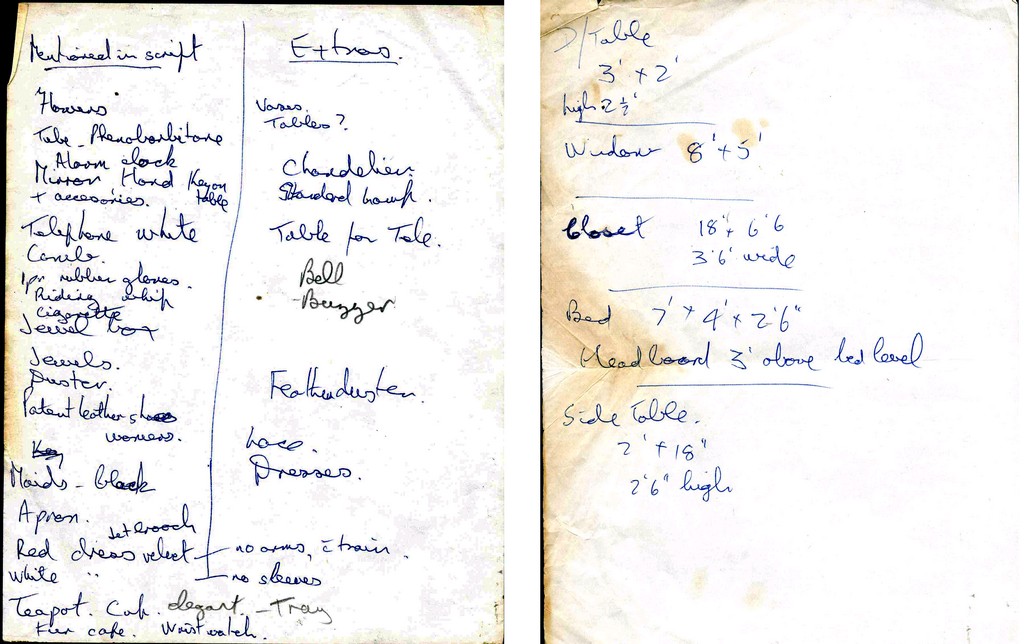 Mentioned in script
Flowers
Tube - Phenobarbitone
Alarm clock
Mirror Hand Key on table
+ accesories.
Telephone white
Comb.
1 pr rubber gloves.
Riding whip
Cigarette
Jewel box
Jewels.
Duster.
Patent leather shoes
womens.
Key
Maids - black
Apron.
Jet brooch
Red dress velvet - no arms, c̄ train.
White " - no sleeves
Teapot. Cup. elegant. - Tray
Fur cape. Wristwatch.
Extras.
Vases.
Tables?
Chandelier.
Standard lamp.
Table for Tele.
Bell
- Buzzer
Featherduster.
Lace.
Dresses.
D/Table
3' x 2'
high 2½'
Window 8' x 5'
Closet 18" x 6'6
3'6" wide
Bed 7' x 4' x 2'6"
Headboard 3' above bed level
Side Table.
2' x 18"
2'6" high